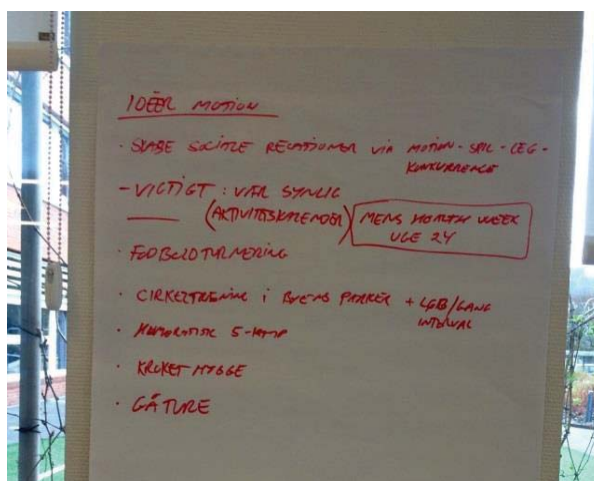 IDÉER MOTION
· SKABE SOCIALE RELATIONER VIA MOTION - SPIL - LEG -
KONKURRENCE
- VIGTIGT : VÆR SYNLIG
(AKTIVITETSKALENDER)
MENS HEALTH WEEK
UGE 24
· FODBOLDTURNERING
· CIRKELTRÆNING I BYENS PARKER + LØB/GANG
INTERVAL
· HUMORISTISK 5-KAMP
· KROKET HYGGE
· GÅTURE